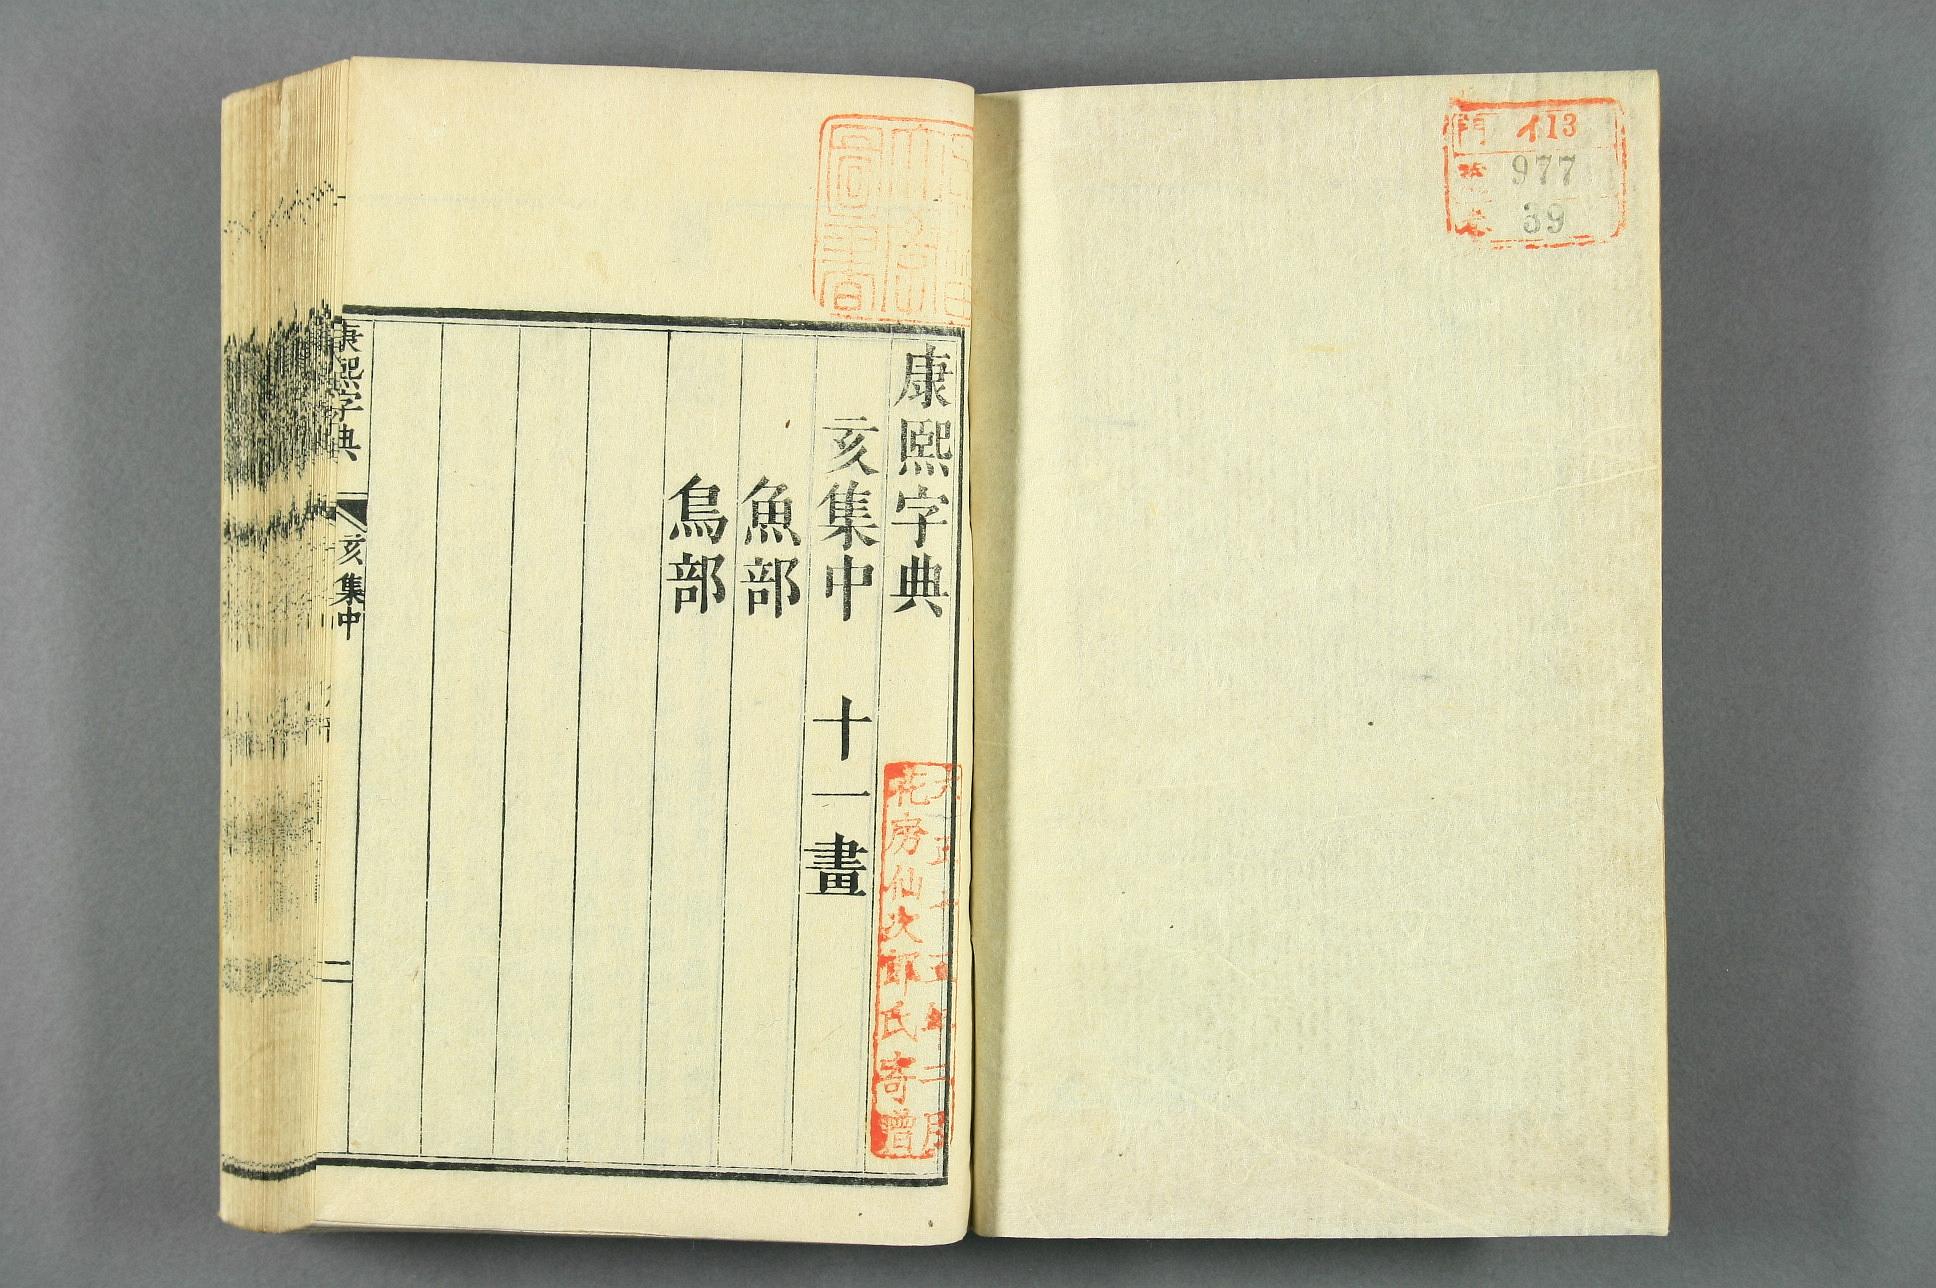 門 イ13
977
卷 39
康熙字典
亥集中 十一畫
魚部
鳥部
花房仙次郎氏寄贈
康熙字典 亥集中 一